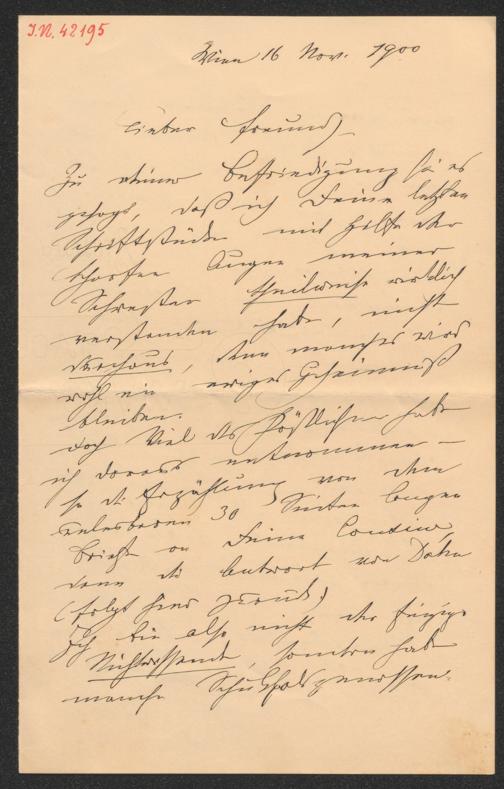 J.N. 42195
Wien 16 Nov. 1900
Lieber Freund!
Zu Deiner Befriedigung sei es
gesagt, daß ich Deine letzten
Schriftstücke mit Hilfe der
scharfen Augen meiner
Schwester theilweise wirklich
verstanden habe, nicht
durchaus, denn manches wird
wohl ein ewiges Geheimniß
bleiben.
Doch Viel des Köstlichen habe
ich daraus entnommen –
so die Erzählung von dem
unlesbaren 30 Seiten langen
Briefe an Deine Cousine,
dann die Antwort von Dahn
(folgt hier zurück)
Ich bin also nicht der Einzige
Nichtwissende, sondern habe
manche Schicksalsgenossen.